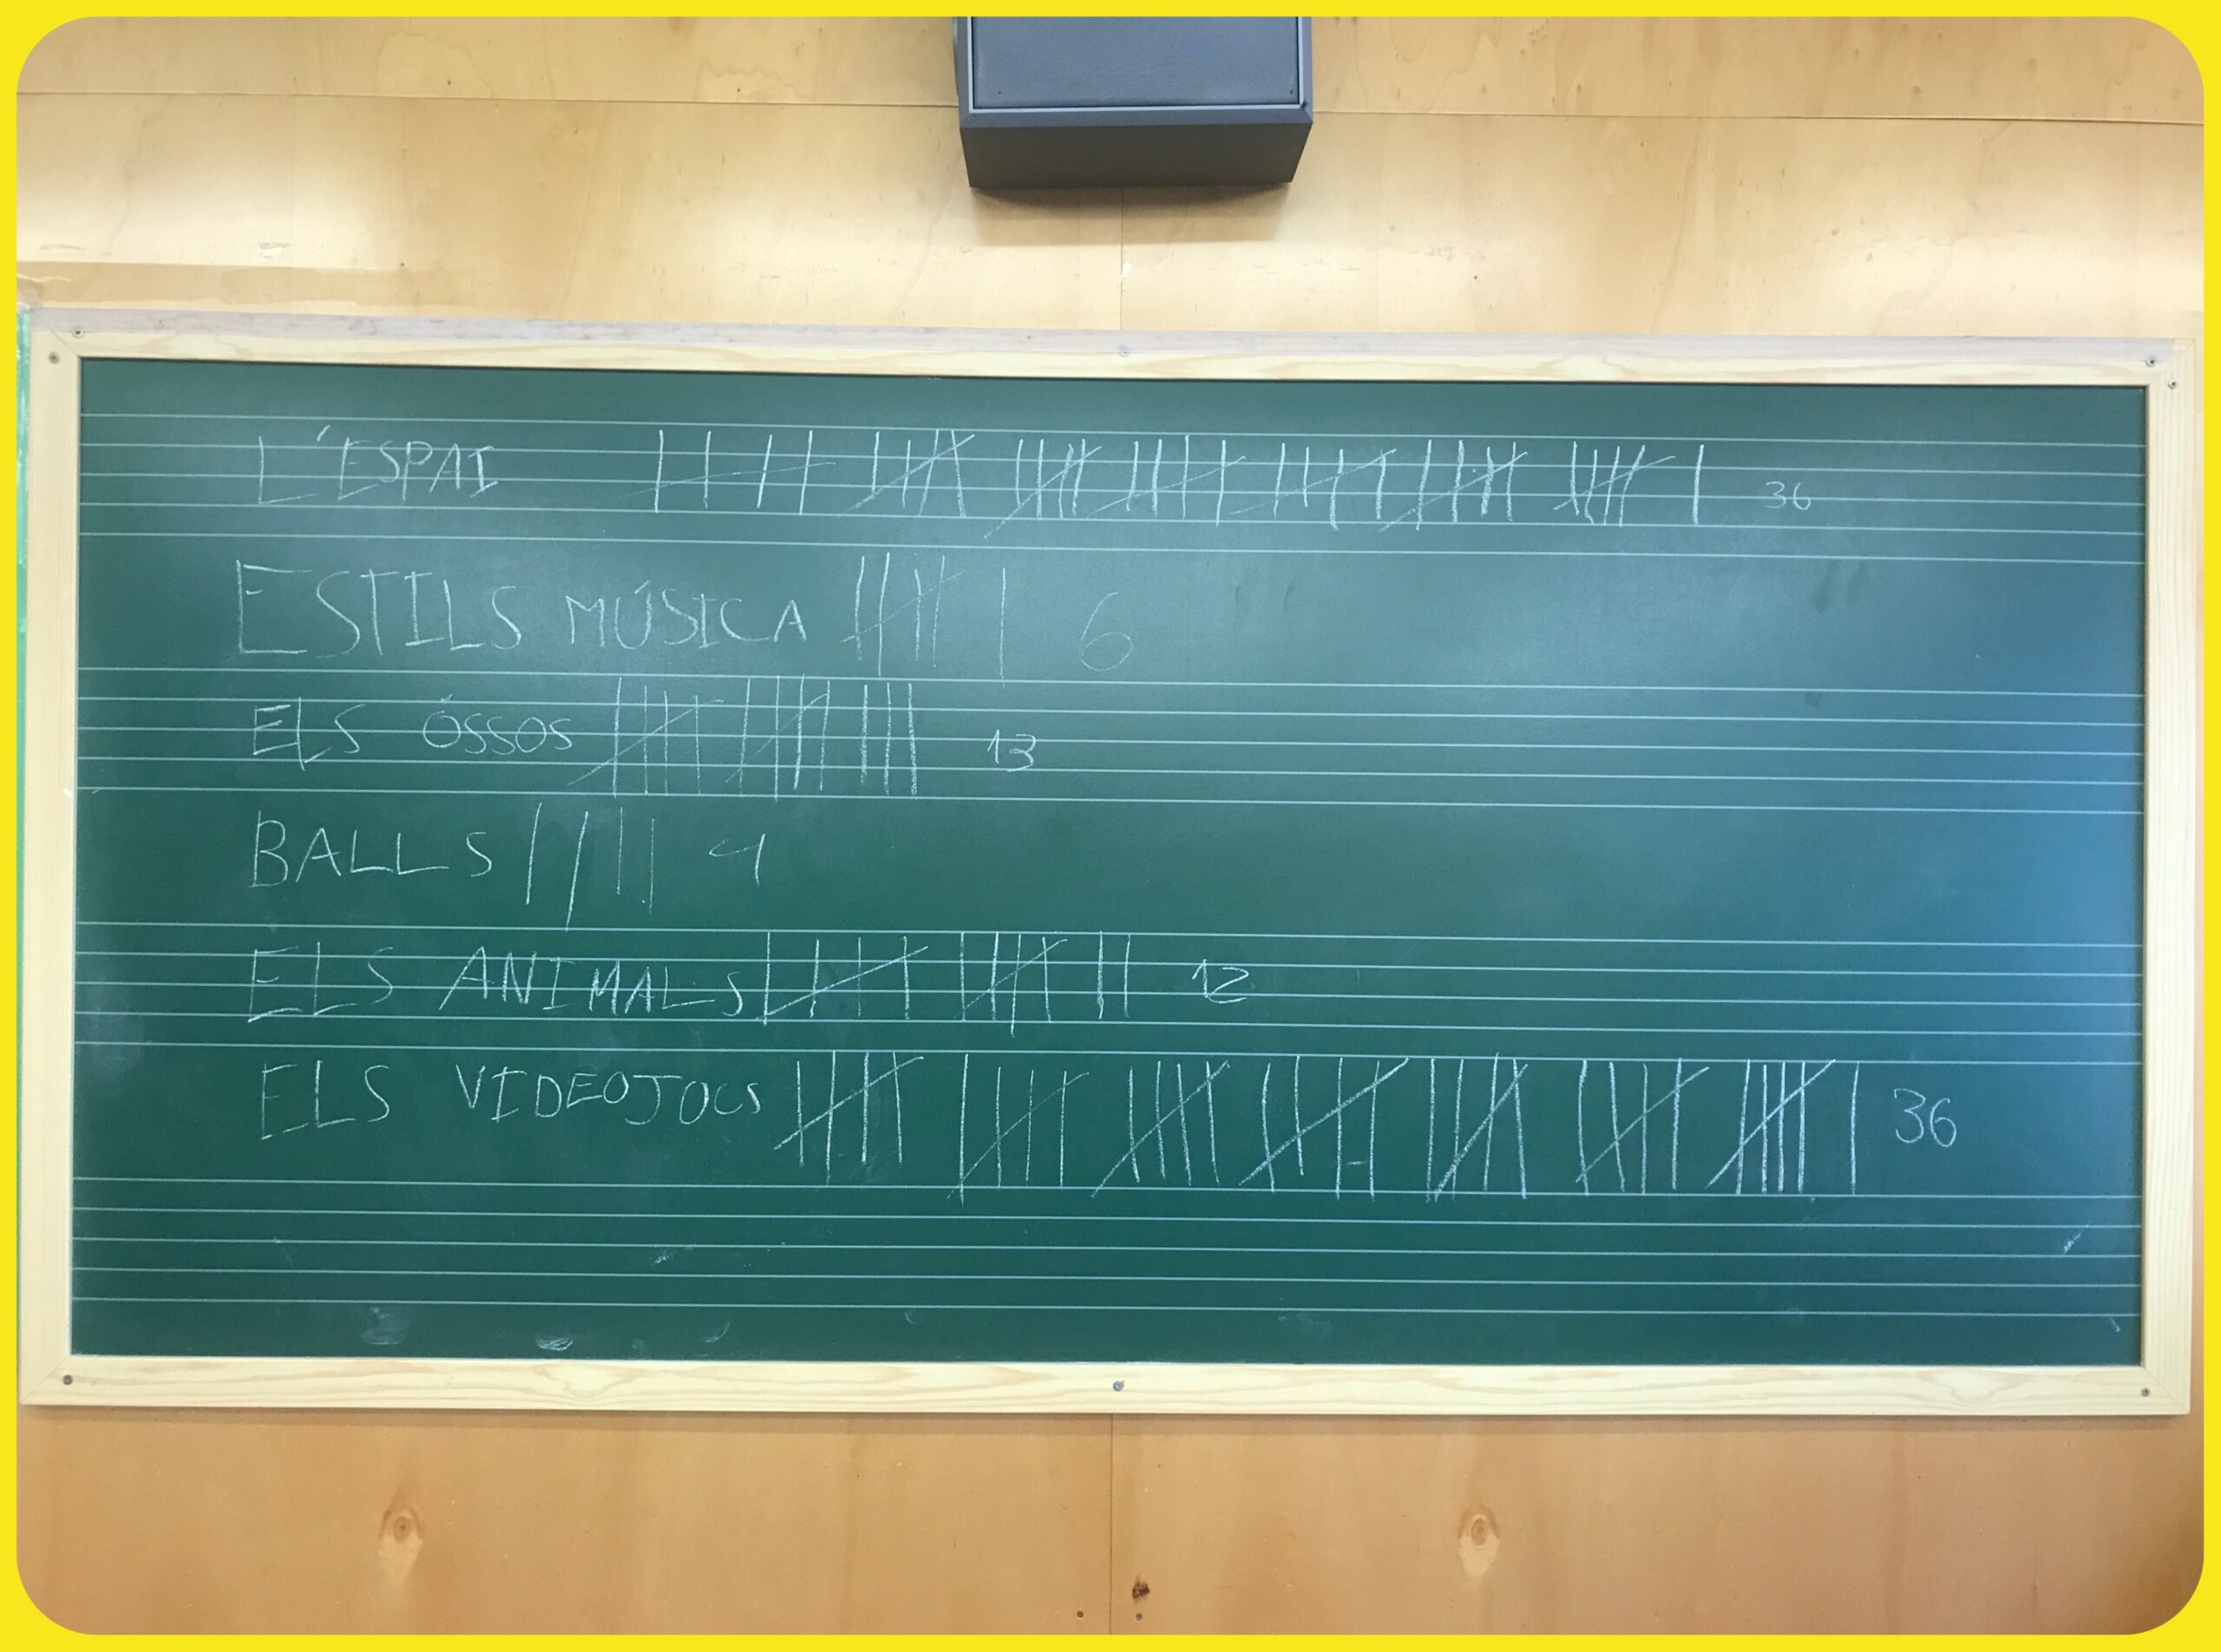 L'ESPAI 36
ESTILS MÚSICA 6
ELS ÓSSOS 13
BALLS 4
ELS ANIMALS 12
ELS VIDEOJOCS 36